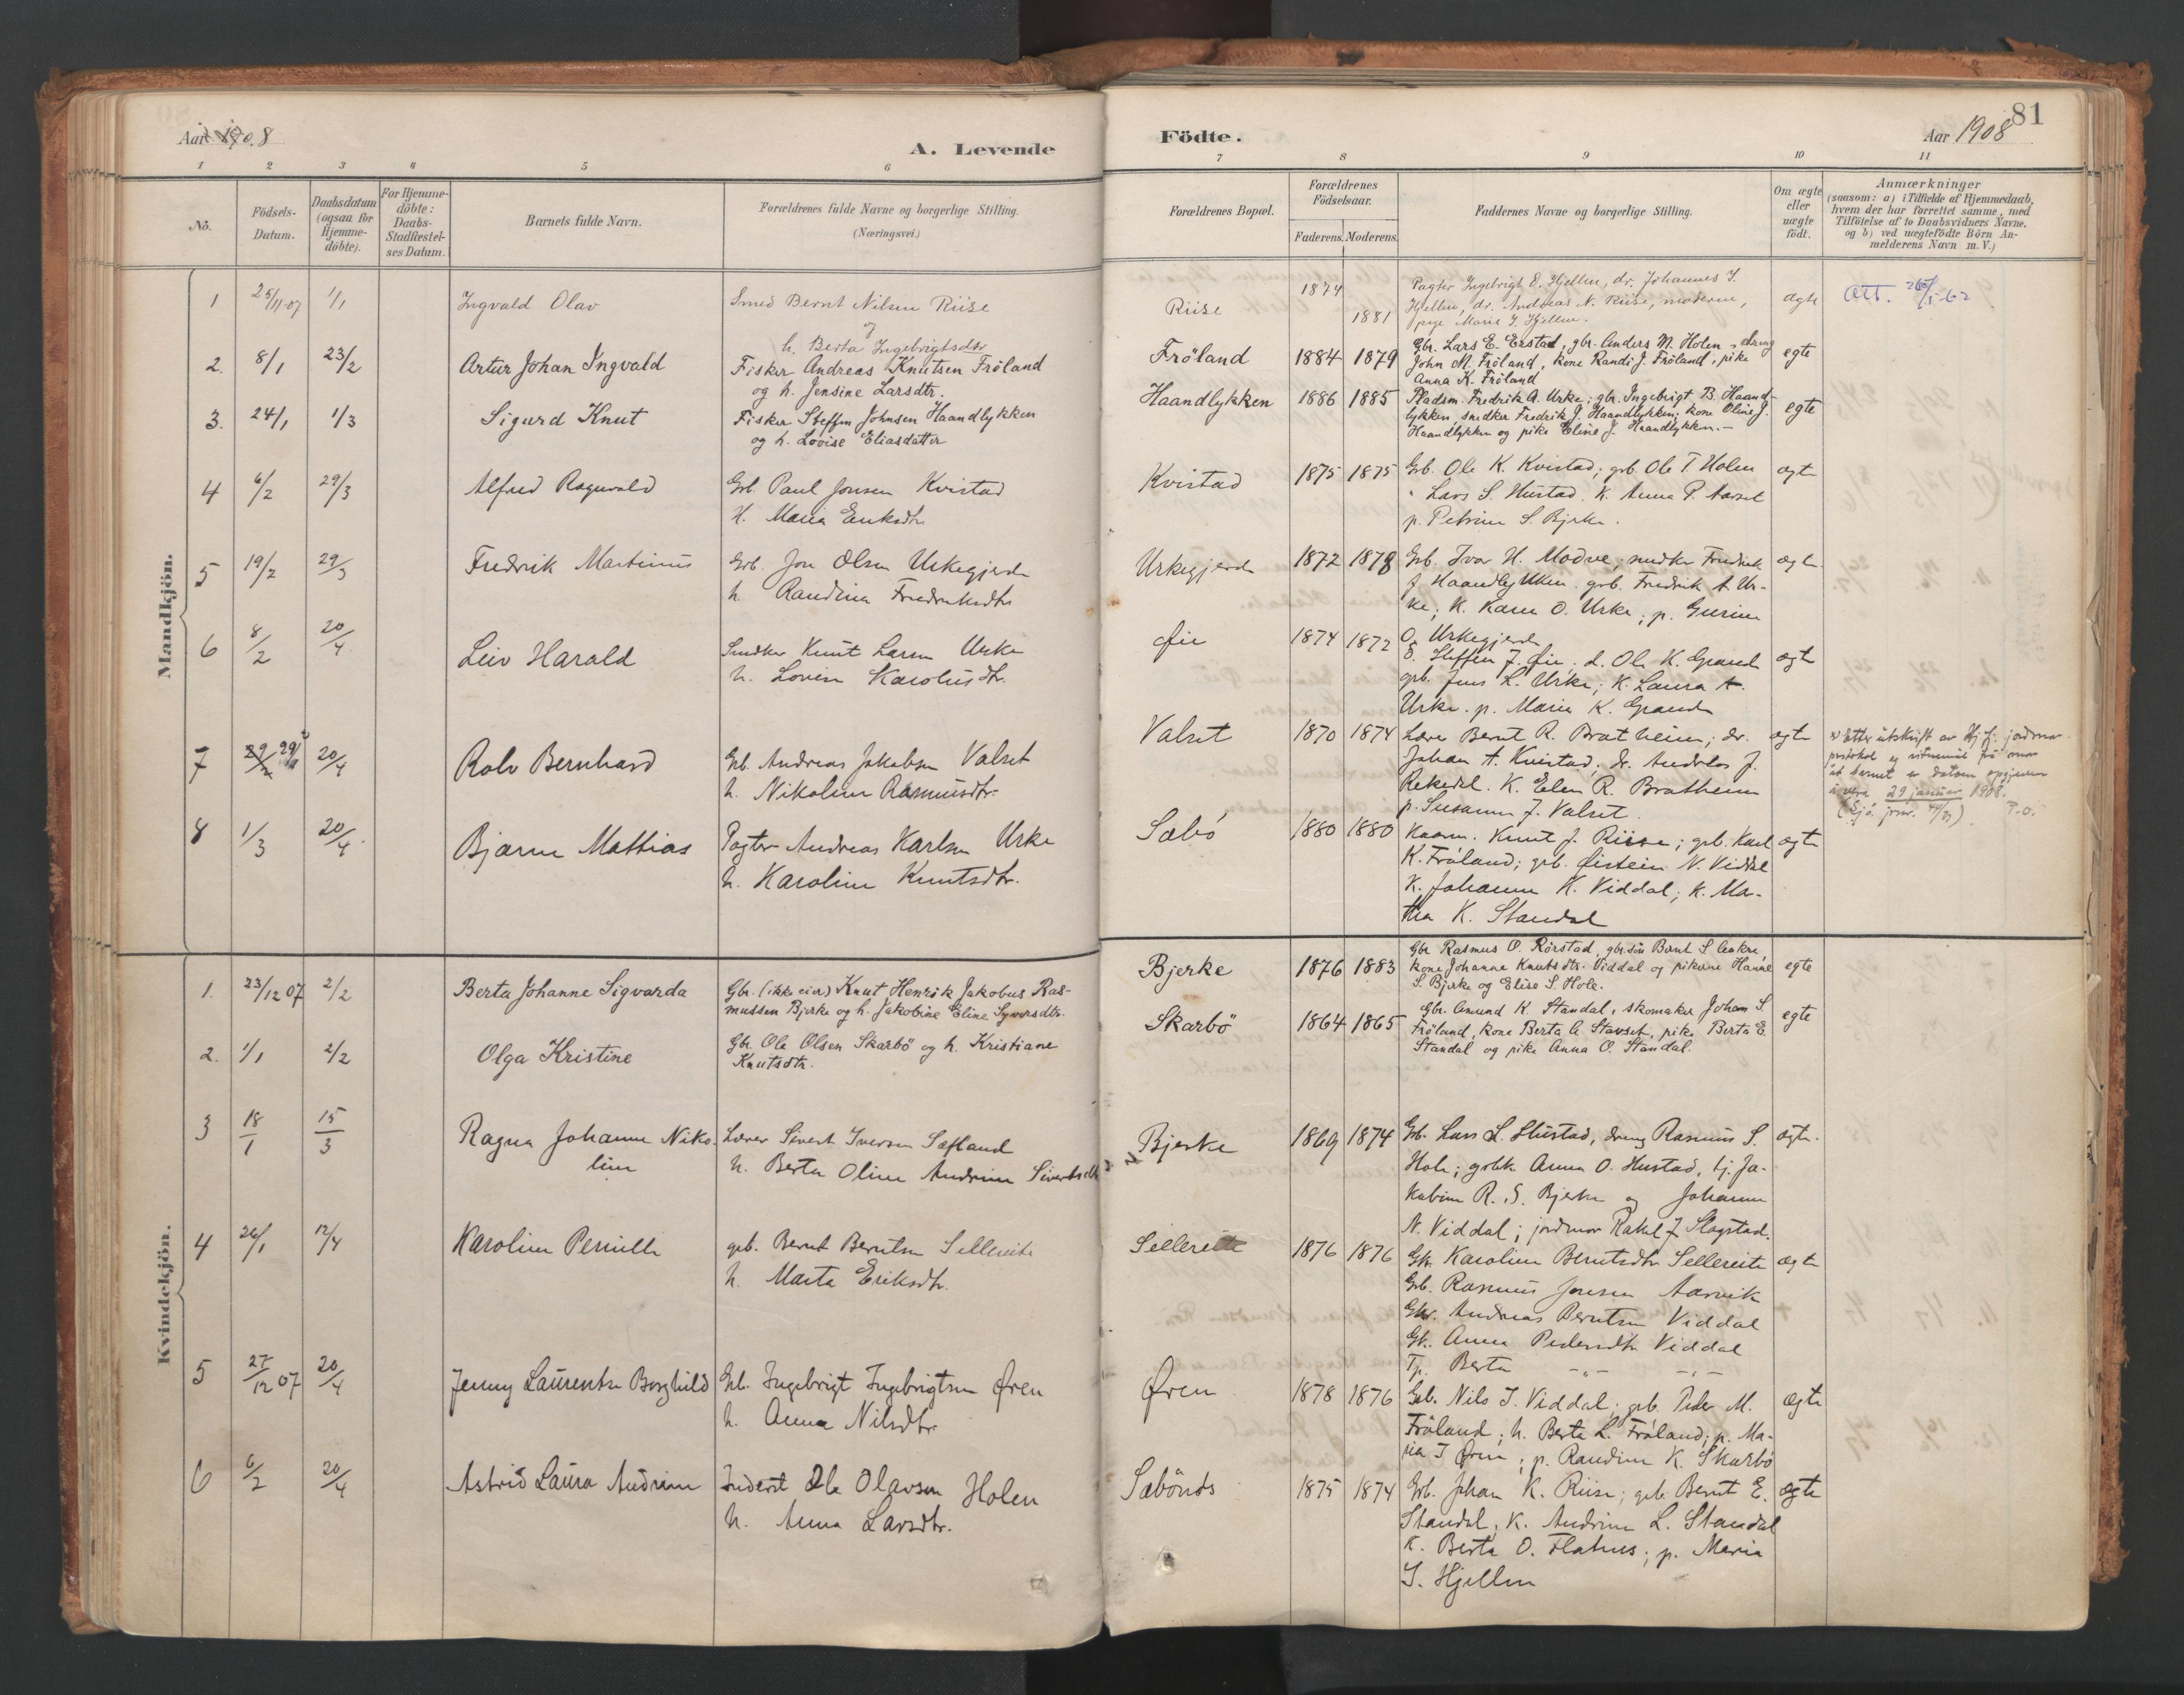 Aar 1908
A. Levende
Födte.
Aar 1908
81
1 2 3 4 5 6 7 8 9 10 11
No.
Födsels-
Datum.
Daabsdatum
(ogsaa for
Hjemme-
döbte).
For Hjemme-
döbte:
Daabs-
Stadfæstel-
ses Datum.
Barnets fulde Navn.
Forældrenes fulde Navne og borgerlige Stilling.
(Næringsvei.)
Forældrenes Bopæl.
Forældrenes
Födselsaar.
Faderens. Moderens.
Faddernes Navne og borgerlige Stilling.
Om ægte
eller
uægte
født.
Anmærkninger
(saasom: a) i Tilfælde af Hjemmedaab,
hvem der har forrettet samme, med
Tilföielse af to Daabsvidners Navne,
og b) ved uægtefödte Börn An-
melderens Navn m. V.)
Mandkjön.
1 25/11-07 1/1 Ingvald Olav
Smed Bernt Nilsen Riise
og
h. Berta Ingebrigtsdtr
Riise 1874 1881
Pagter Ingebrigt O. Hjellen, dr. Johannes I.
Hjellen, dr. Andreas N. Riise, moderen,
pige Marie I. Hjellen.
ægte
Att.
2. 8/1 23/2 Artur Johan Ingvald
Fisker Andreas Knutsen Fröland
og h. Jensine Larsdtr.
Fröland 1884 1879
Gbr. Lars E. Erstad, gbr. Anders M. Holen, dreng
John M. Fröland, kone Randi J. Fröland, pike
Anna K. Fröland
egte
3. 24/1 1/3 Sigurd Knut
Fisker Steffen Johnsen Haandlykken
og h. Lovise Eliasdatter
Haandlykken 1886 1885
Pladsm. Fredrik A. Urke; gbr. Ingebrigt B. Haand-
lykken, snedker Fredrik J. Haandlykken; kone Oline J.
Haandlykken og pike Eline J. Haandlykken.-
egte
4 6/2 29/3 Alfred Ragnvald
Grb. Paul Jonsen Kvistad
H. Maria Eriksdtr.
Kvistad 1875 1875
Grb. Ole K. Kvistad; grb. Ole T. Holen
" Lars S. Hustad. K. Anna P. Aarset
p. Petrine S. Bjerke.
ægte
5 19/2 29/3 Fredrik Martinus
Grb. Jon Olsen Urkegjerde
h. Randina Fredriksdtr
Urkegjerde 1872 1878
Grb. Ivar H. Modve; snedker Fredrik
J Haandlykken. grb. Fredrik A. Ur-
ke; K. Karen O. Urke; p. Gurine
O. Urkegjerde
ægte
6 8/2 20/4 Leiv Harald
Snedker Knut Larsen Urke
h. Lovise Karolusdtr.
Øie 1874 1872
S. Steffen J. Øie; d. Ole K. Grande
grb. Jens L. Urke; K. Laura A.
Urke. p. Maria K. Grande
ægte
7 29/2 29/1 20/4 Rolv Bernhard
Grb. Andreas Jakobsen Valset
h. Nikoline Rasmusdtr.
Valset 1870 1874
Lærer Bernt R. Bratheim; dr.
Johan A. Kvistad; dr. Andreas J.
Rekedal. K. Elen R. Bratheim
p. Susanne J. Valset.
ægte
x) Etter utskrift av Hj.f. jordmor
protokol og vitnemål frå mor
åt barnet er datoen opgjeven
å vera 29 januar 1908.
8 1/3 20/4 Bjarne Mathias
Pagter Andreas Karlsen Urke
h. Karoline Knutsdtr.
Sæbö 1880 1880
Kaarm. Knut J. Riise; grb. Karl
K. Fröland; grb. Øistein N. Viddal
K. Johanne K. Viddal; K. Ma-
thea K. Standal
ægte
Kvindekjön.
1. 23/12 07 2/2 Berta Johanne Sigvarda
Gbr. (ikke eier) Knut Henrik Jakobus Ras-
mussen Bjerke og h. Jakobine Eline Syversdtr.
Bjerke 1876 1883
Gbr Rasmus O. Rörstad, gbr.sön Bernt S Leknes,
kone Johanne Knutsdtr. Viddal og pikene Hanne
S. Bjerke og Elise S. Hole.
egte
2. 1/1 2/2 Olga Kristine
Gbr. Ole Olsen Skarbö og h. Kristiane
Knutsdtr.
Skarbö 1864 1865
Gbr. Amund K. Standal, skomaker Johan S.
Fröland, kone Berta A. Stavset, pike Berta E.
Standal og pike Anna O. Standal.
egte
3 18/1 15/3 Ragna Johanne Niko-
line
Lærer Sivert Iversen Sæfland
h. Berta Oline Andrine Sivertsdtr
Bjerke 1869 1874
Grb. Lars L. Hustad, dreng Rasmus S.
Hole; grbk. Anna O. Hustad, tj. Ja-
kobine R. S. Bjerke og Johanne
N. Viddal; jordmor Rakel J Slogstad.
ægte.
4 26/1 12/4 Karoline Pernille
grb. Bernt Berntsen Sellereite
h. Marta Eriksdtr.
Sellereite 1876 1876
Gk. Karoline Berntsdtr Sellereite
Grb. Rasmus Jonsen Aarvik
Gbr. Andreas Berntsen Viddal
Gk. Anna Pedersdtr Viddal
Tp. Berta -"- -"-
ægte
5 27/12 07 20/4 Jenny Laurentse Borghild
Grb. Ingebrigt Ingebrigtsen Øren
h. Anna Nilsdtr.
Øren 1878 1876
Grb. Nils I. Viddal; grb. Peder M.
Fröland; h. Berte L. Fröland; p. Ma-
ria I Øren; p. Randine K. Skarbö
ægte
6 6/2 20/4 Astrid Laura Andrine
Inderst Ole Olavsen Holen
h. Anna Larsdtr.
Sæbönes 1875 1874
Grb. Johan K. Riise; grb. Bernt E.
Standal, K. Andrine L. Standal
K. Berta O. Flatnes; p. Maria
I. Hjellen
ægte